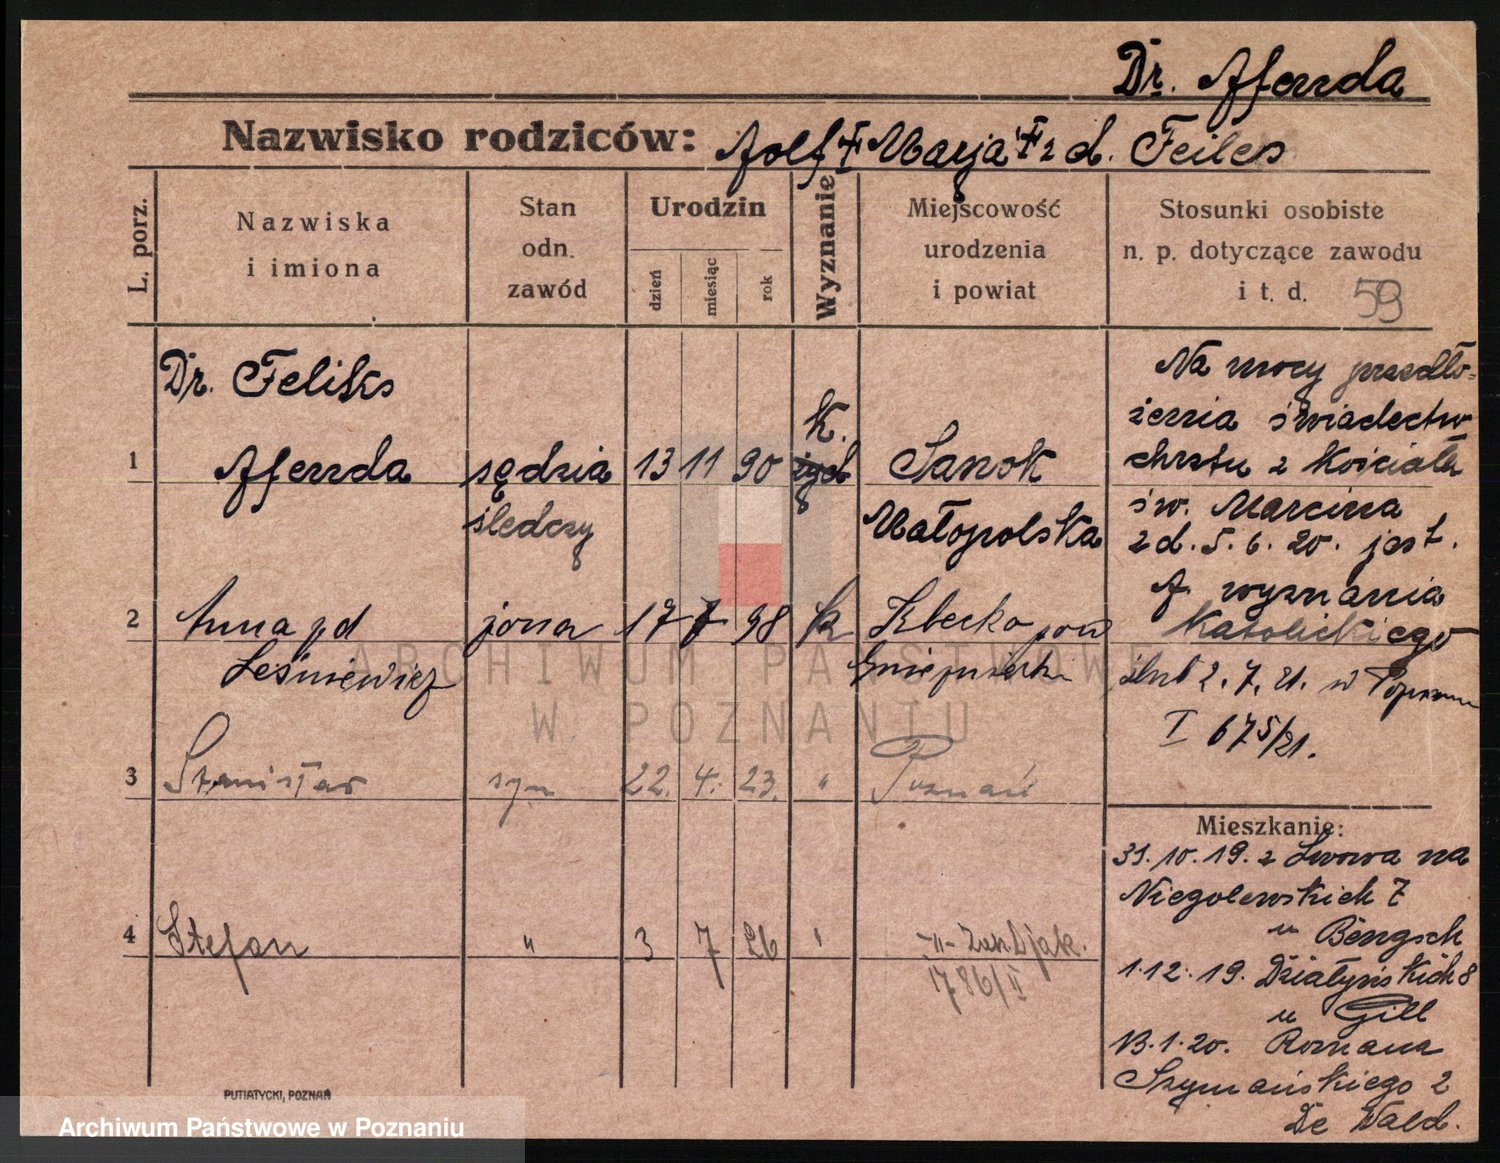 Dr. Afenda
Nazwisko rodziców: Adolf † Marja † z d. Feiles
L. porz.
Nazwiska i imiona
Stan odn. zawód
Urodzin
dzień
miesiąc
rok
Wyznanie
Miejscowość urodzenia i powiat
Stosunki osobiste n. p. dotyczące zawodu i t. d. 59
Dr. Feliks
1 Afenda sędzia 13 11 90 K. żyd Sanok
śledczy Małopolska
2 Anna zd żona 17 7 98 k Kłecko pow
Leśniewicz Gnieźnieński
3 Stanisław syn 22. 4. 23. " Poznań
4 Stefan " 3 7 26 " -"-
1786/II
Na mocy przedło-
żenia świadectw
chrztu z Kościoła
św. Marcina
z d. 5. 6. 20. jest.
A. wyznania
Katolickiego
ślub 2. 7. 21. w Poznaniu
I 675/21.
Mieszkanie:
31. 10. 19. z Lwowa na
Niegolewskich 7
u Bengsch
1. 12. 19. Działyńskich 8
u Gill
13. 1. 20. Romana
Szymańskiego 2
De Wald.
PUTIATYCKI, POZNAŃ
ARCHIWUM PAŃSTWOWE
W POZNANIU
Archiwum Państwowe w Poznaniu